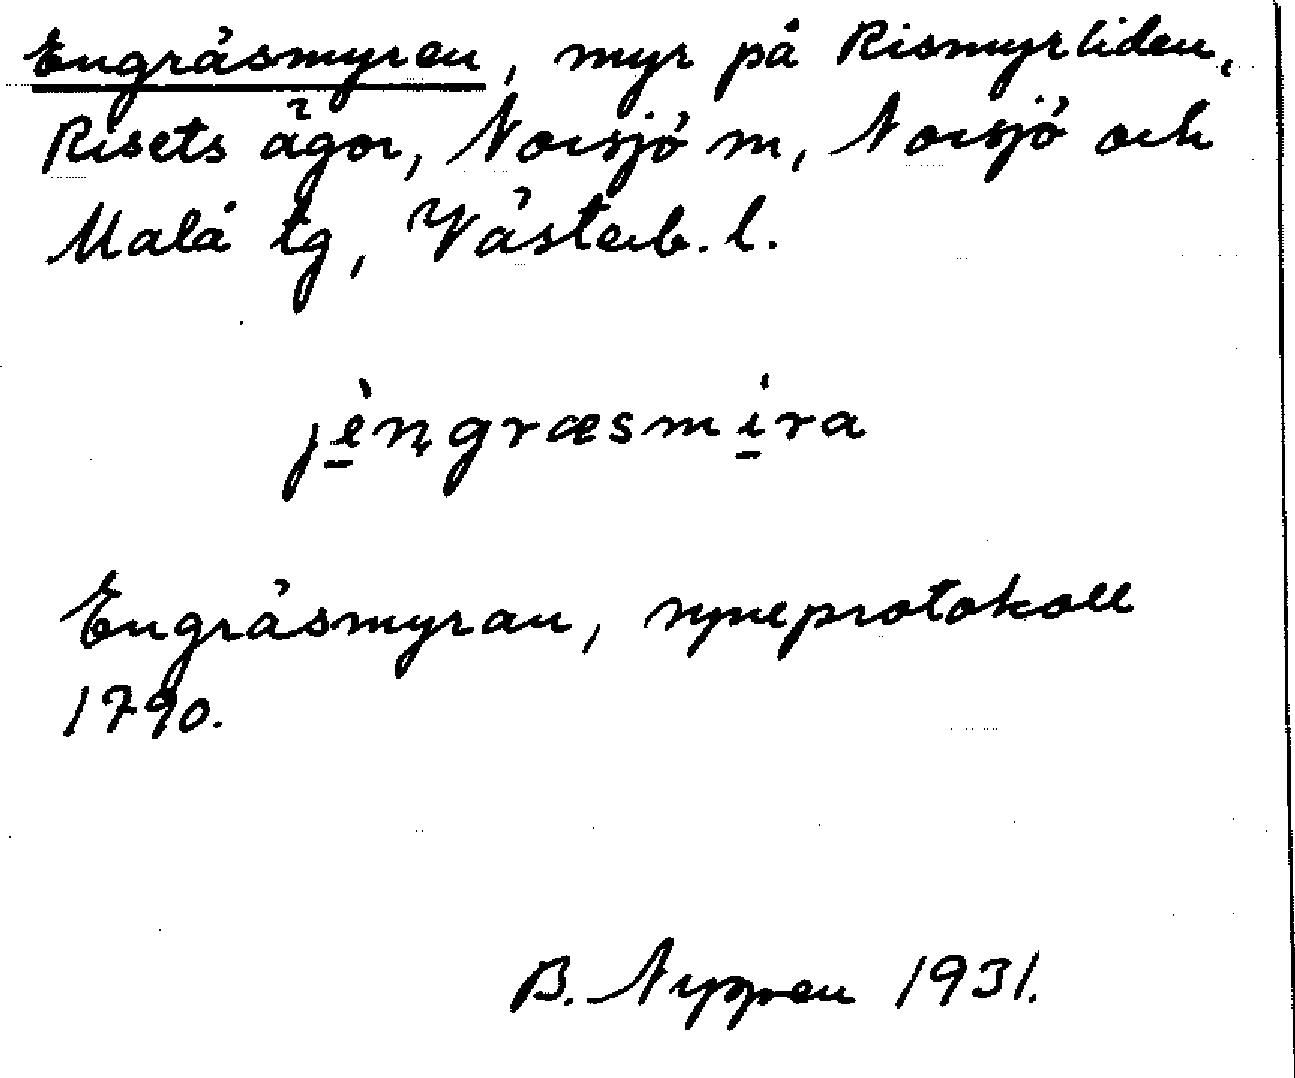 Engräsmyren, myr på Rismyrliden,
Risets ägor, Norsjö sn, Norsjö och
Malå tg, Västerb. l.
jèn̡græsmíra
Engräsmyran, syneprotokoll
1790.
B. Nygren 1931.